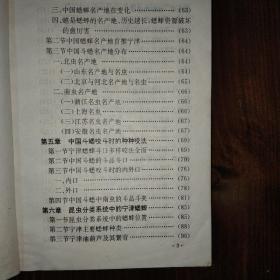 三、中国蟋蟀名产地在变化……(63)
四、越是蟋蟀的名产地,历史越长,蟋蟀资源破坏
的愈厉害……(63)
第二节中国蟋蟀名产地首推宁津……(64)
第三节中国斗蟋名产地分布……(64)
一、北虫名产地……(64)
(一)山东名产地与名虫……(64)
(二)北京与河北名产地与名虫……(66)
二、南虫名产地……(67)
(一)浙江名虫名产地……(67)
(二)上海名虫……(67)
(三)江苏名虫名产地……(68)
(四)安徽名虫名产地……(68)
第五章 中国斗蟋咬斗时的种种咬法……(69)
第一节宁津蟋蟀斗口多样咬法全面……(69)
第二节中国斗蟋的斗品斗口……(76)
第三节中国斗蟋咬斗时的内外口……(77)
一、内口……(77)
二、外口……(78)
第四节中国斗蟋中南虫的斗品斗夹……(79)
第六章 昆虫分类系统中的宁津蟋蟀……(85)
第一节昆虫分类系统中的蟋蟀位置……(85)
第二节宁津主要蟋蟀种类……(88)
第三节宁津油葫芦及其繁育……(90)
·3·